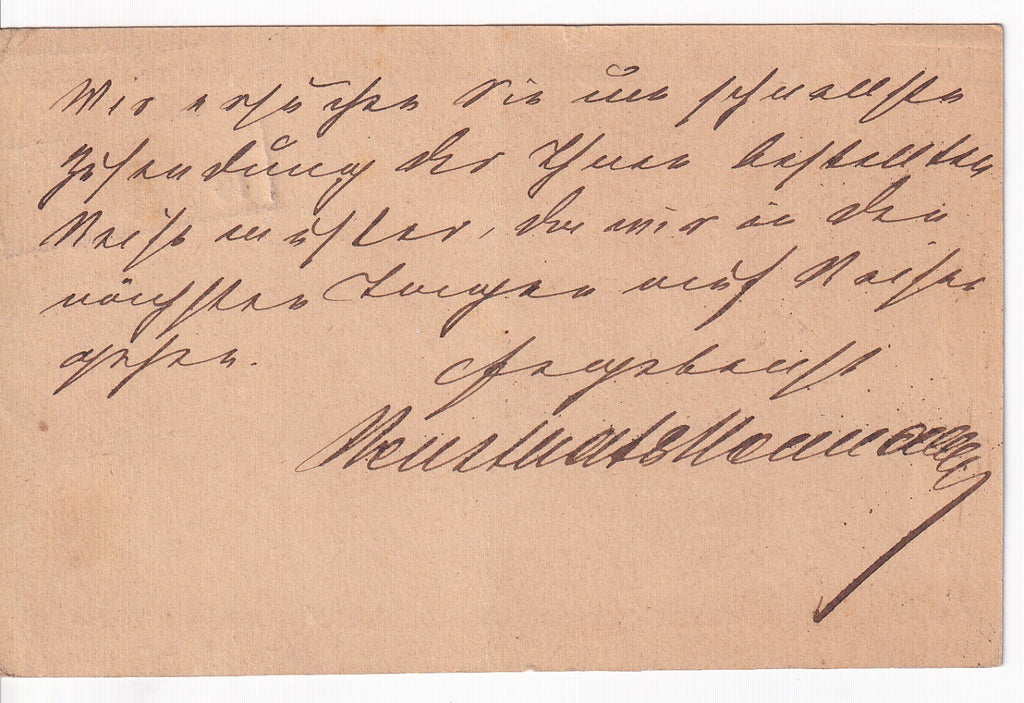 Wir ersuchen Sie um schnellste
Zusendung der Ihnen bestellten
Reisemuster, da wir in den
nächsten Tagen auf Reisen
gehen.
Ergebenst